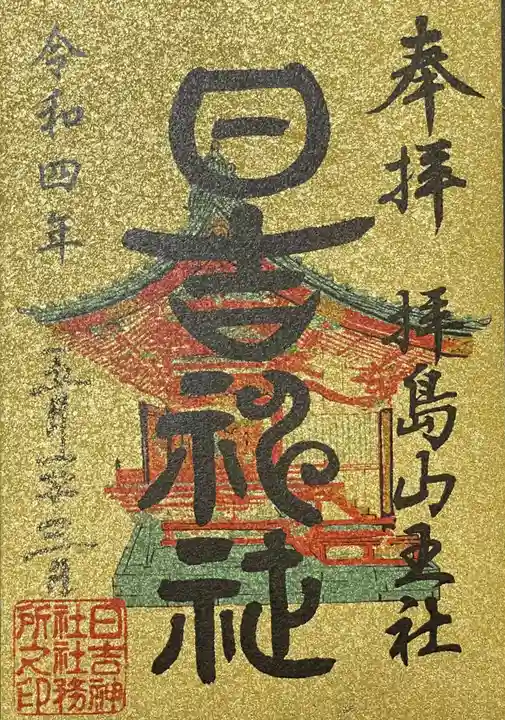 奉拝 拝島山王社
日吉神社
令和四年
五月 三日
日吉神
社社務
所之印